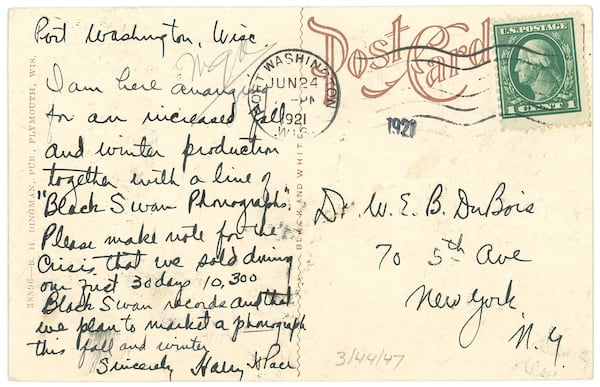 Port Washington, Wisc
I am here arranging
for an increased fall
and winter production
together with a line of
"Black Swan Phonographs".
Please make note for the
Crisis that we sold during
our first 30 days 10,300
Black Swan records and that
we plan to market a phonograph
this fall and winter
Sincerely Harry H Pace
38896 - B. H. DINGMAN, PUB. PLYMOUTH, WIS.
BLACK AND WHITE
Post Card
PORT WASHINGTON
JUN 24
1921
WIS.
1921
U.S. POSTAGE
1 CENT 1
Dr W. E. B. DuBois
70 5th Ave
New York
N.Y.
3/44/47